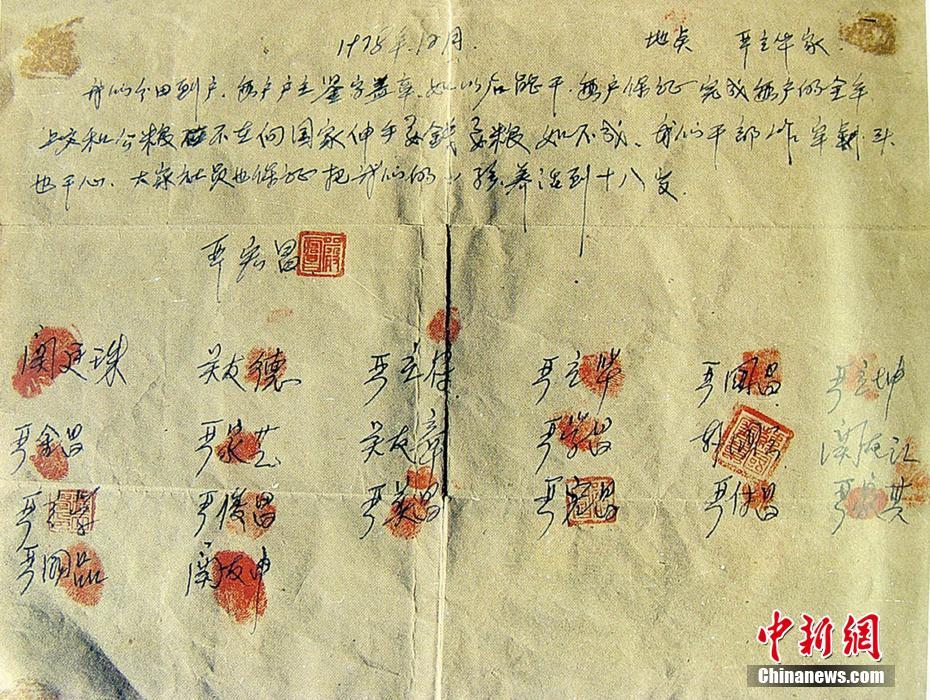 1978年12月. 地点 严立华家
我们分田到户,每户户主鉴字盖章,如以后能干,每户保证完成每户的全年
上交和公粮 不在向国家伸手要钱要粮 如不成,我们干部作牢剎头
也干心,大家社员也保证把我们的小孩养活到十八岁
严宏昌
关廷珠 关友德 严立符 严立华 严国昌 严立坤
严金昌 严家芝 关友章 严学昌 韩国云 关友江
严立学 严俊昌 严美昌 严宏昌 严付昌 严家其
严国品 关友申
中新網
Chinanews.com